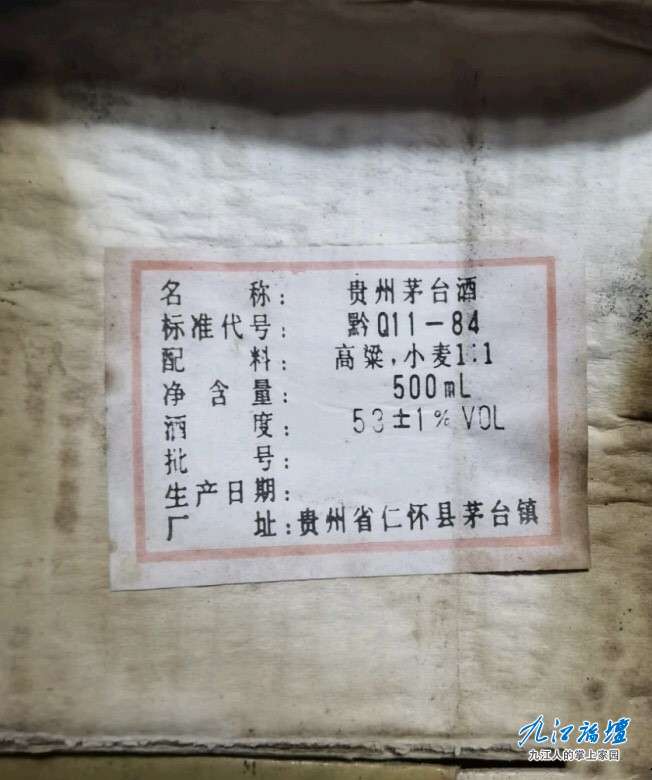 名 称： 贵州茅台酒
标准代号： 黔Q11-84
配 料： 高粱,小麦1:1
净含量： 500mL
酒 度： 53±1% VOL
批 号：
生产日期：
厂 址：贵州省仁怀县茅台镇
九江论坛
九江人的掌上家园